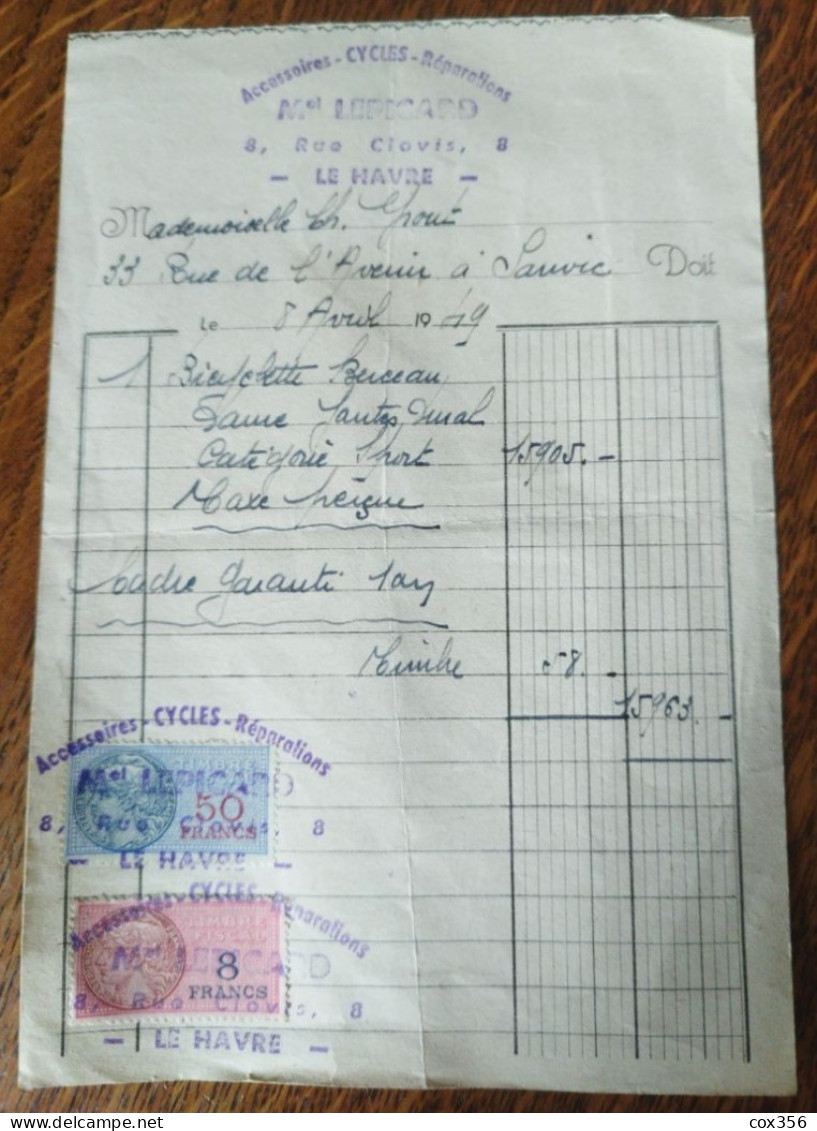 Accessoires - CYCLES - Réparations
Mel LEPICARD
8, Rue Clovis, 8
- LE HAVRE -
Mademoiselle Ch.
33 Rue de l'Avenir à Sanvic Doit
Le 8 Avril 1949
1 Bicyclette Berceau
Dame
Catégorie Sport 15905.-
Cadre Garanti 1 an
Timbre 58.-
15963.-
Accessoires - CYCLES - Réparations
TIMBRE
Mel LEPICARD
50
FRANCS
8, Rue Clovis, 8
- LE HAVRE -
Accessoires - CYCLES - Réparations
TIMBRE
FISCAL
Mel LEPICARD
8
FRANCS
8, Rue Clovis, 8
- LE HAVRE -
cox356